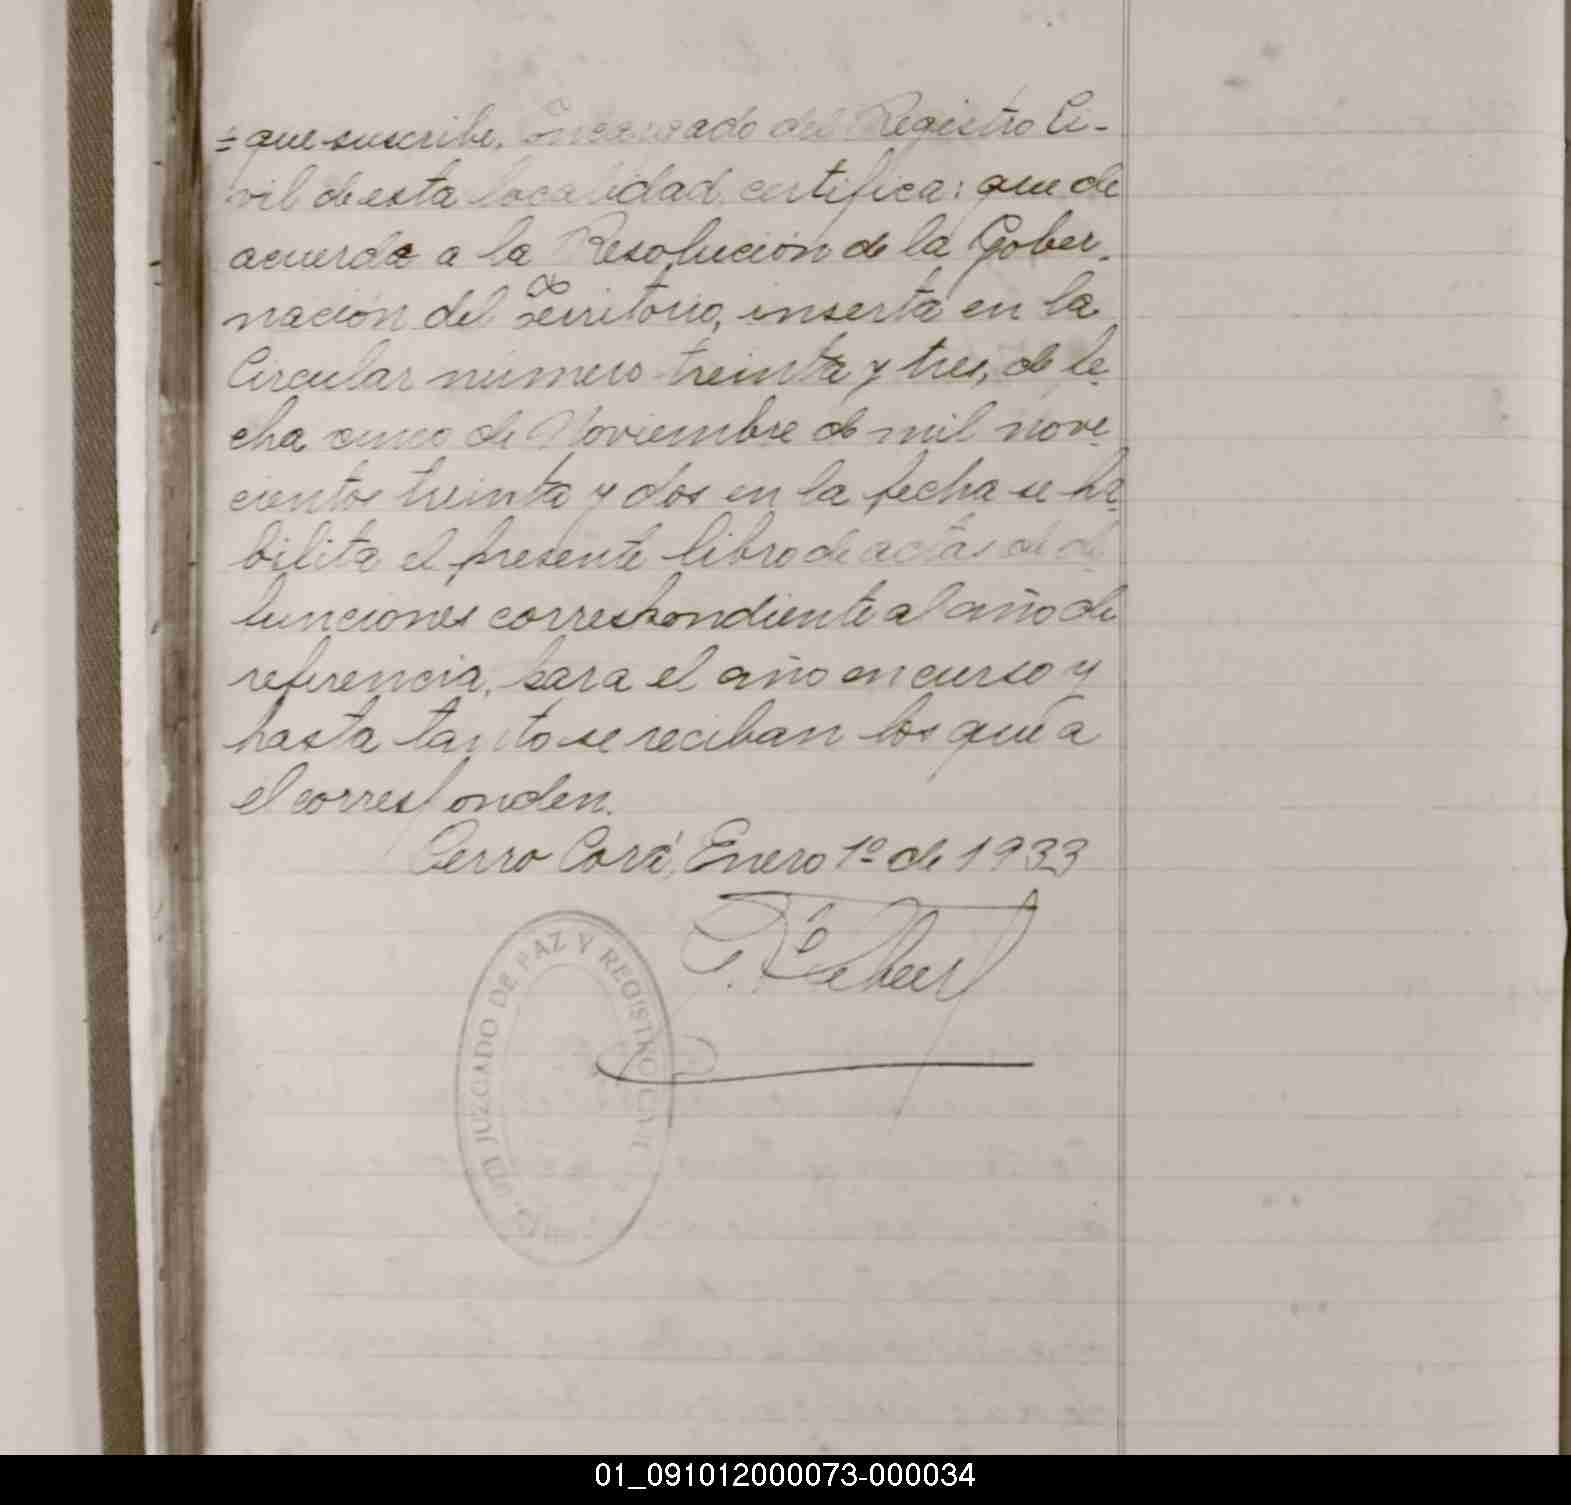 = que suscribe, Encargado del Registro Ci-
vil de esta localidad, certifica: que de
acuerdo a la Resolución de la Gober-
nación del Territorio, inserta en la
Circular número treinta y tres, de fe-
cha cinco de Noviembre de mil nove-
cientos treinta y dos en la fecha se ha-
bilita el presente libro de actas de de-
funciones correspondiente al año de
referencia, para el año en curso y
hasta tanto se reciban los que a
el corresponden.
Cerro Corá, Enero 1º de 1933
JUZGADO DE PAZ Y REGISTRO CIVIL
01_091012000073-000034